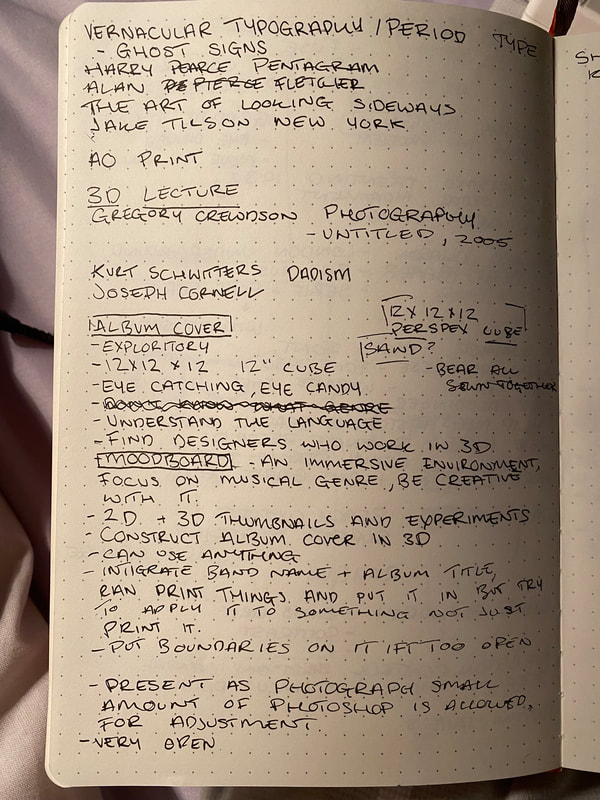 VERNACULAR TYPOGRAPHY / PERIOD TYPE
- GHOST SIGNS
HARRY PEARCE PENTAGRAM
ALAN FLETCHER
THE ART OF LOOKING SIDEWAYS
JAKE TILSON NEW YORK
AO PRINT
3D LECTURE
GREGORY CREWDSON PHOTOGRAPHY
- UNTITLED, 2005
KURT SCHWITTERS DADISM
JOSEPH CORNELL
ALBUM COVER
- EXPLORITORY
- 12X12X12 12" CUBE
- EYE CATCHING, EYE CANDY
- DON'T KNOW WHAT GENRE
- UNDERSTAND THE LANGUAGE
- FIND DESIGNERS WHO WORK IN 3D
12X12X12
PERSPEX CUBE
SAND?
- BEAR ALL
SEWN TOGETHER
MOODBOARD - AN IMMERSIVE ENVIRONMENT,
FOCUS ON MUSICAL GENRE, BE CREATIVE
WITH IT.
- 2D + 3D THUMBNAILS AND EXPERIMENTS
- CONSTRUCT ALBUM COVER IN 3D
- CAN USE ANYTHING
- INTIGRATE BAND NAME + ALBUM TITLE,
CAN PRINT THINGS AND PUT IT IN BUT TRY
TO APPLY IT TO SOMETHING NOT JUST
PRINT IT.
- PUT BOUNDARIES ON IT IF TOO OPEN
- PRESENT AS PHOTOGRAPH SMALL
AMOUNT OF PHOTOSHOP IS ALLOWED,
FOR ADJUSTMENT
- VERY OPEN